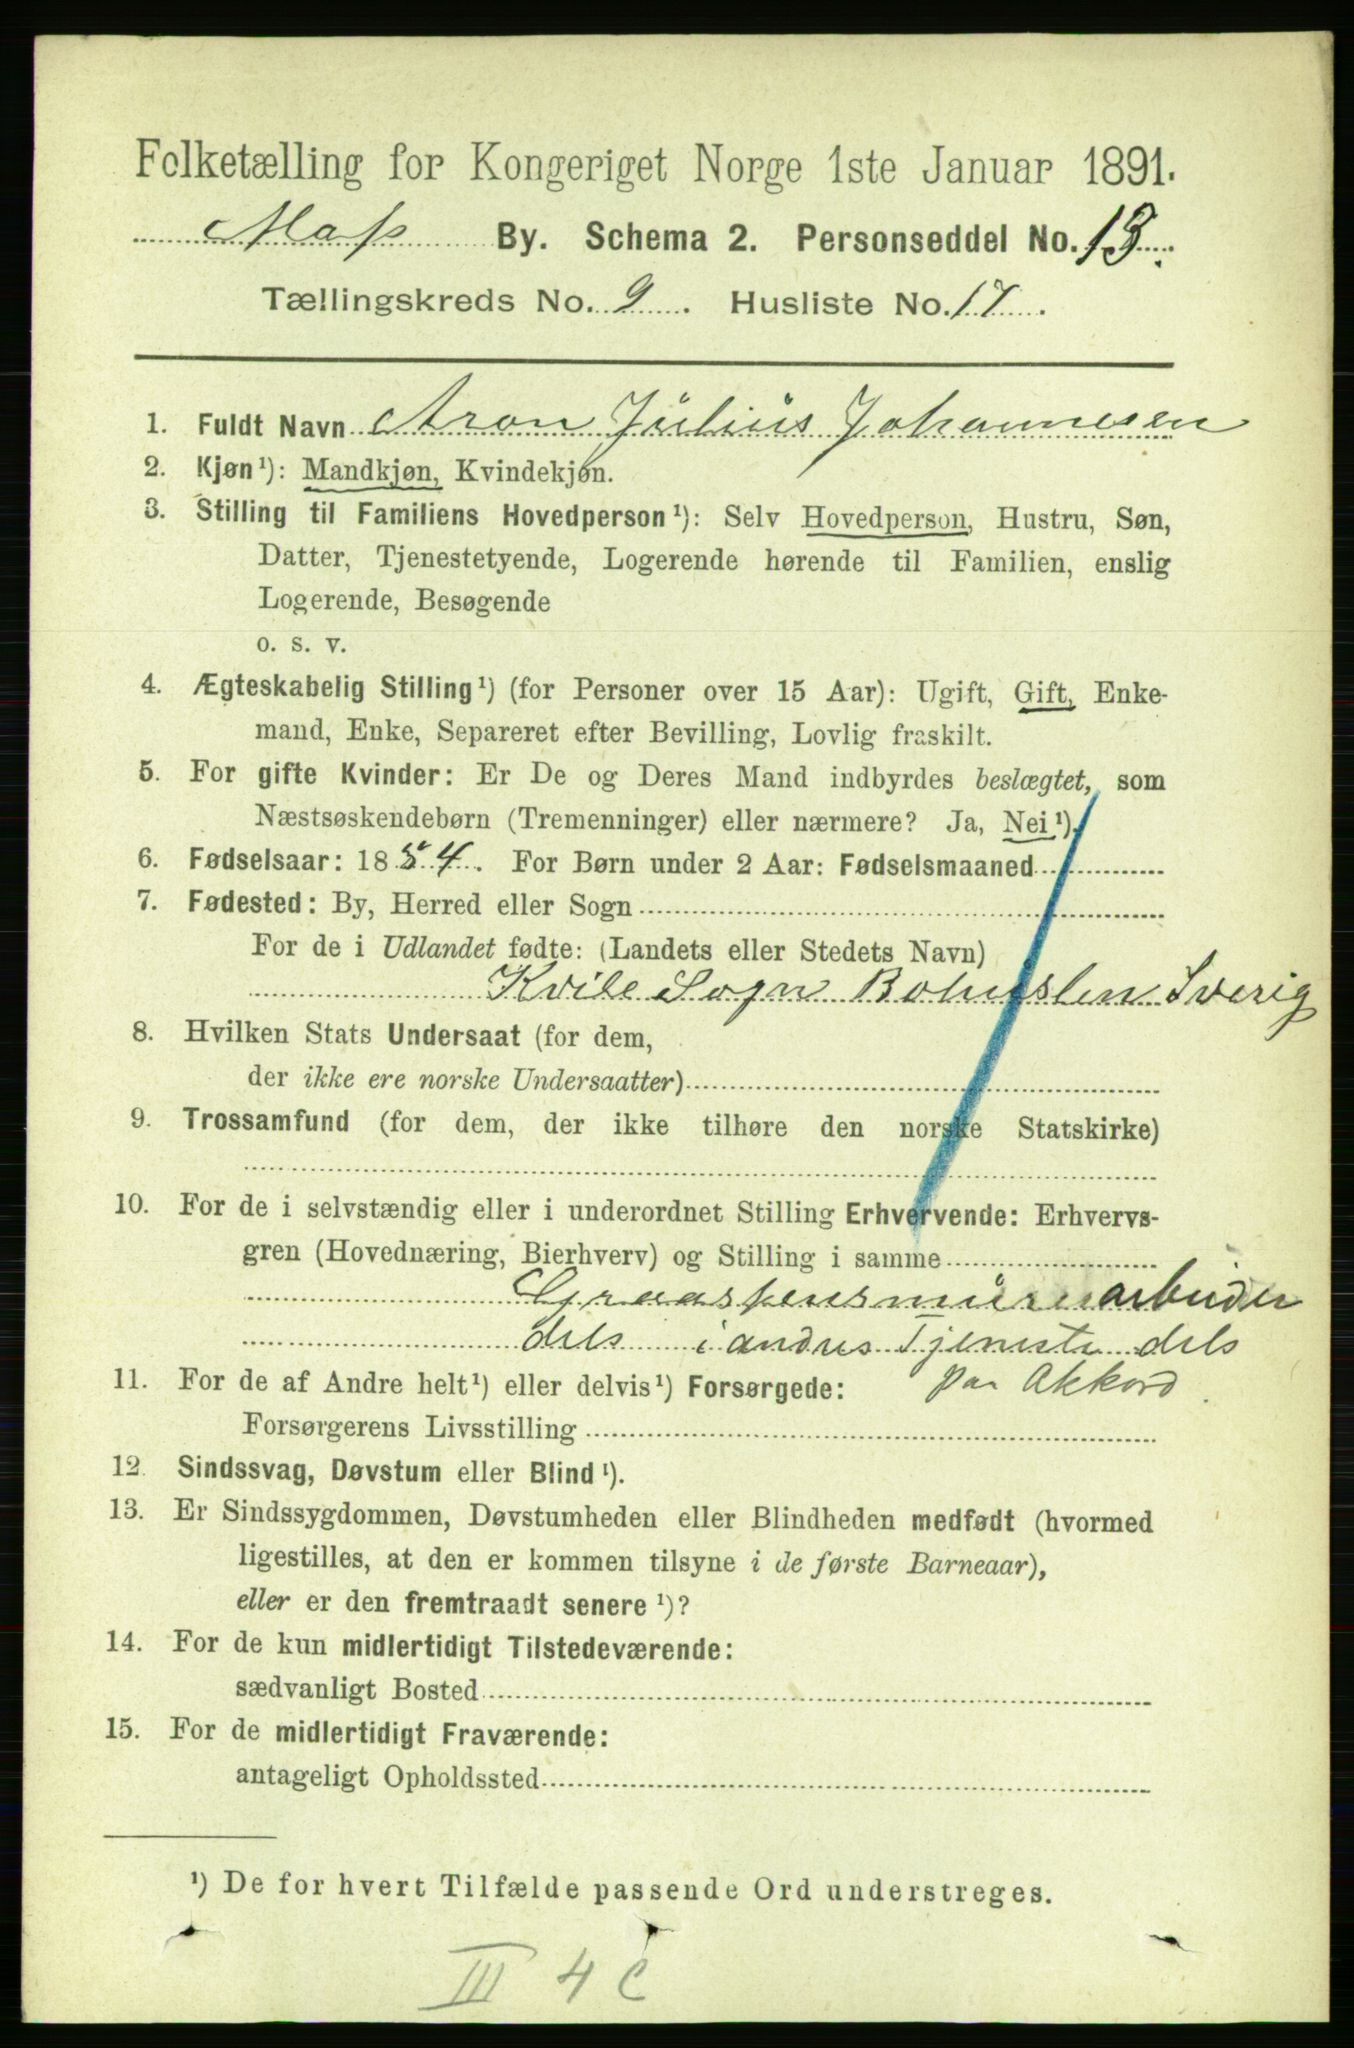 Folketælling for Kongeriget Norge 1ste Januar 1891.
Moss By. Schema 2. Personseddel No. 13.
Tællingskreds No. 9. Husliste No. 17.
1. Fuldt Navn Aron Julius Johannesen
2. Kjøn¹): Mandkjøn, Kvindekjøn.
3. Stilling til Familiens Hovedperson¹): Selv Hovedperson, Hustru, Søn,
Datter, Tjenestetyende, Logerende hørende til Familien, enslig
Logerende, Besøgende
o. s. v.
4. Ægteskabelig Stilling¹) (for Personer over 15 Aar): Ugift, Gift, Enke-
mand, Enke, Separeret efter Bevilling, Lovlig fraskilt.
5. For gifte Kvinder: Er De og Deres Mand indbyrdes beslægtet, som
Næstsøskendebørn (Tremenninger) eller nærmere? Ja, Nei¹).
6. Fødselsaar: 1854. For Børn under 2 Aar: Fødselsmaaned
7. Fødested: By, Herred eller Sogn
For de i Udlandet fødte: (Landets eller Stedets Navn)
Kvile Sogn Bohuslen Sverig
8. Hvilken Stats Undersaat (for dem,
der ikke ere norske Undersaatter)
9. Trossamfund (for dem, der ikke tilhøre den norske Statskirke)
10. For de i selvstændig eller i underordnet Stilling Erhvervende: Erhvervs-
gren (Hovednæring, Bierhverv) og Stilling i samme
arbeider
dels i andres Tjeneste dels
paa Akkord
11. For de af Andre helt¹) eller delvis¹) Forsørgede:
Forsørgerens Livsstilling
12. Sindssvag, Døvstum eller Blind¹).
13. Er Sindssygdommen, Døvstumheden eller Blindheden medfødt (hvormed
ligestilles, at den er kommen tilsyne i de første Barneaar),
eller er den fremtraadt senere¹)?
14. For de kun midlertidigt Tilstedeværende:
sædvanligt Bosted
15. For de midlertidigt Fraværende:
antageligt Opholdssted
¹) De for hvert Tilfælde passende Ord understreges.
III 4 C